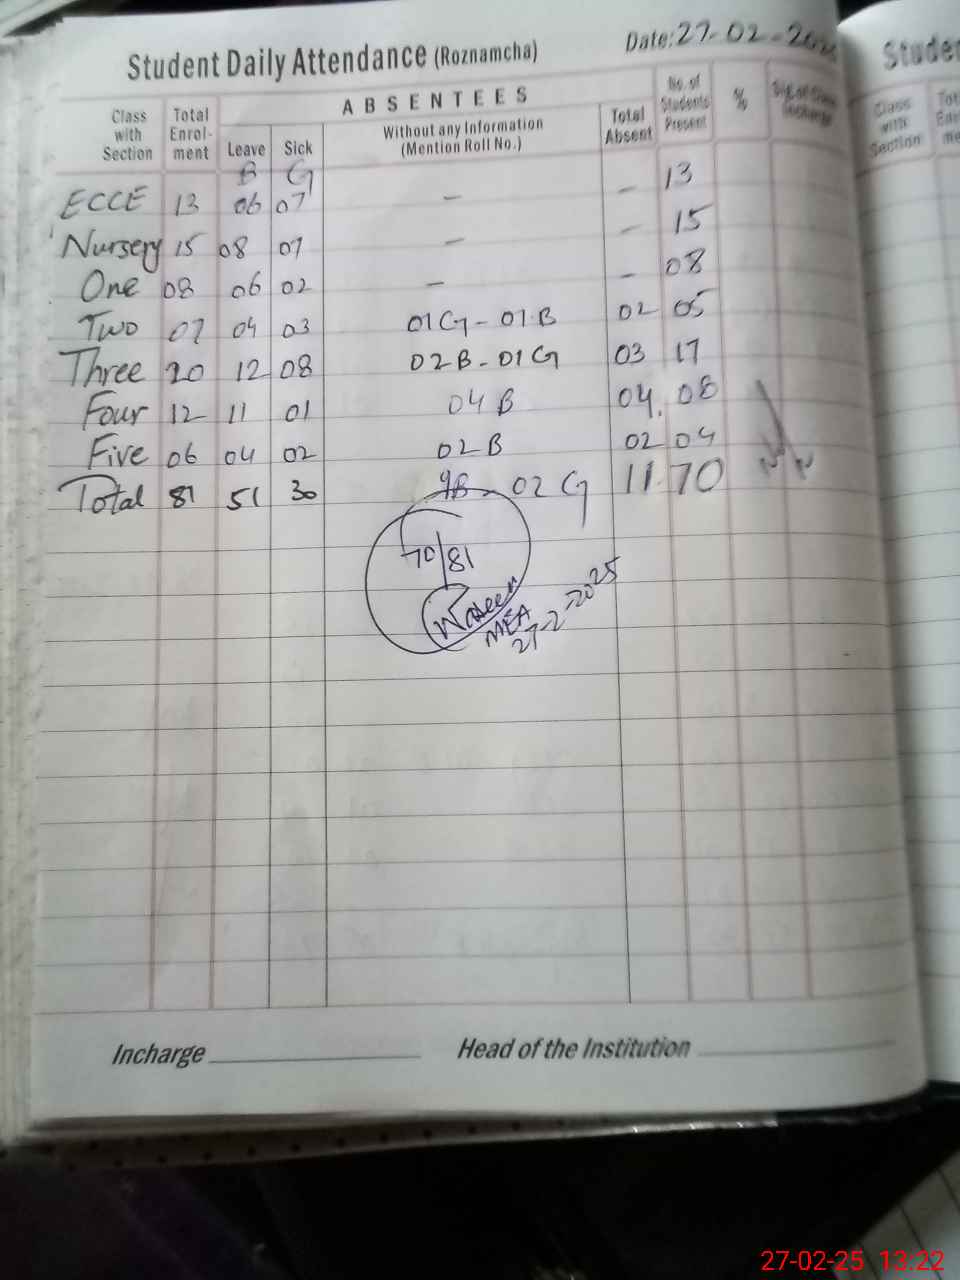 Student Daily Attendance (Roznamcha) Date: 27-02-2025
Class with Section Total Enrol-ment ABSENTEES No. of Students Present %
Leave Sick Without any Information (Mention Roll No.) Total Absent
B G
ECCE 13 06 07 – – 13
Nursery 15 08 07 – – 15
One 08 06 02 – – 08
Two 07 04 03 01G - 01.B 02 05
Three 20 12 08 02B - 01G 03 17
Four 12 11 01 04 B 04. 08
Five 06 04 02 02 B 02 04
Total 81 51 30 9B - 02 G 11 70
70/81
Waseem
MEA
27-2-2025
Incharge Head of the Institution
Studen
Class with Section Tot
27-02-25 13:22